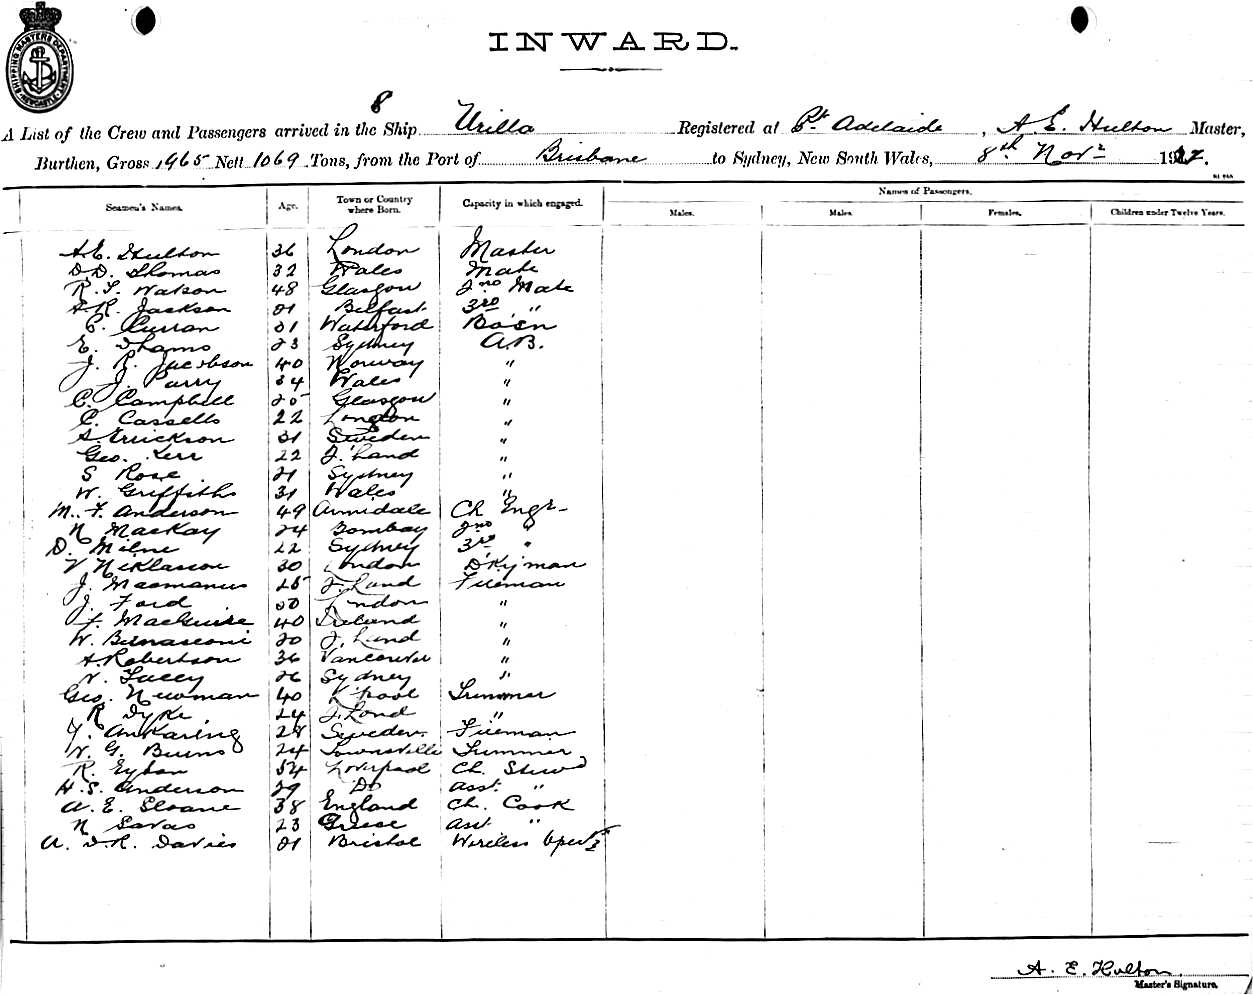 SHIPPING MASTERS DEPARTMENT NEWCASTLE
INWARD.
8
A List of the Crew and Passengers arrived in the Ship Urilla Registered at Pt Adelaide, A. E. Hulton Master,
Burthen, Gross 1965 Nett 1069 Tons, from the Port of Brisbane to Sydney, New South Wales, 8th Novr 1922.
Seamen's Names. Age. Town or Country where Born. Capacity in which engaged. Names of Passengers.
Males. Males. Females. Children under Twelve Years.
A.E. Hulton 36 London Master
D.D. Thomas 32 Wales Mate
R. T. Watson 48 Glasgow 2nd Mate
A.R. Jackson 21 Belfast 3rd "
C. Curran 31 Waterford Bo'sn
E. 23 Sydney A.B.
J. R. Jacobson 40 Norway "
J. Parry 34 Wales "
C. Campbell 25 Glasgow "
C. Cassells 22 London "
A. Erickson 31 Sweden "
Geo. Kerr 22 "
S Rose 21 Sydney "
W. Griffiths 31 Wales "
M. F. Anderson 49 Armidale Ch Engr
N MacKay 24 Bombay 2nd "
D. Milne 22 Sydney 3rd "
V Niklasson 30 London D'Kyman
J. Macmanus 25 Fireman
J. Ford 50 London "
F. MacGuire 40 Ireland "
W. Bernasconi 20 "
A. Robertson 36 Vancouver "
N. Lacey 26 Sydney "
Geo. Newman 40 L'pool Trimmer
R Dyke 24 "
Y. Ankaring 28 Sweden. Fireman
W. G. Burns 24 Townsville Trimmer
R. Eyton 54 Liverpool Ch. Stewd
H. S. Anderson 29 Do Asst. "
A. E. Sloane 38 England Ch. Cook
N Savas 23 Greece Asst "
A. D.R. Davies 21 Bristol Wireless Opert
A. E. Hulton
Master's Signature.